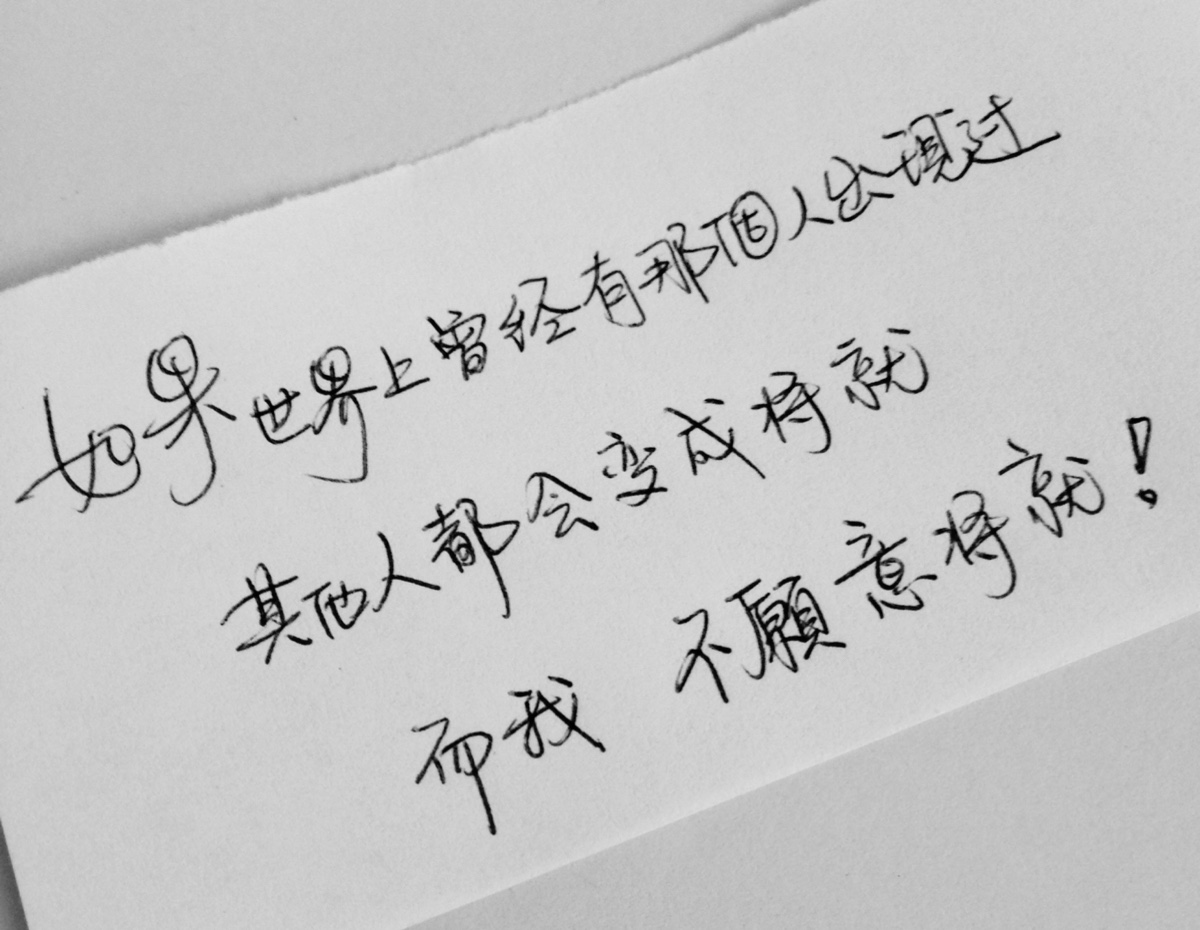 如果世界上曾经有那個人出現过
其他人都会变成将就
而我 不願意将就!